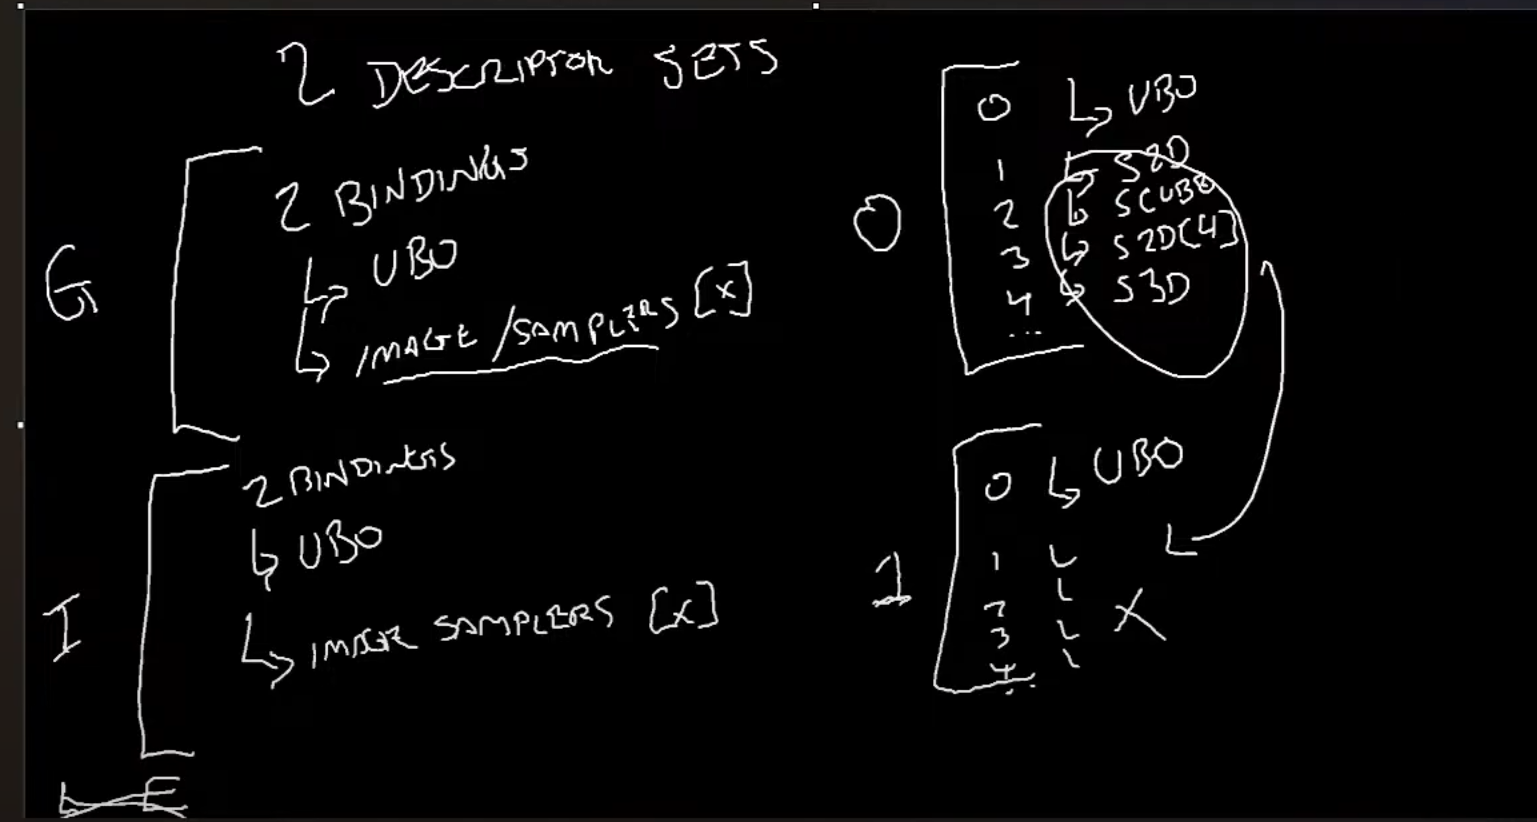 2 DESCRIPTOR SETS
G
2 BINDINGS
↳ UBO
↳ IMAGE/SAMPLERS [X]
I
2 BINDINGS
↳ UBO
↳ IMAGE SAMPLERS [X]
0
0 ↳ UBO
1 ↳ S2D
2 ↳ SCUBE
3 ↳ S2D[4]
4 ↳ S3D
...
1
0 ↳ UBO
1 L
2 L
3 L X
4 L
...